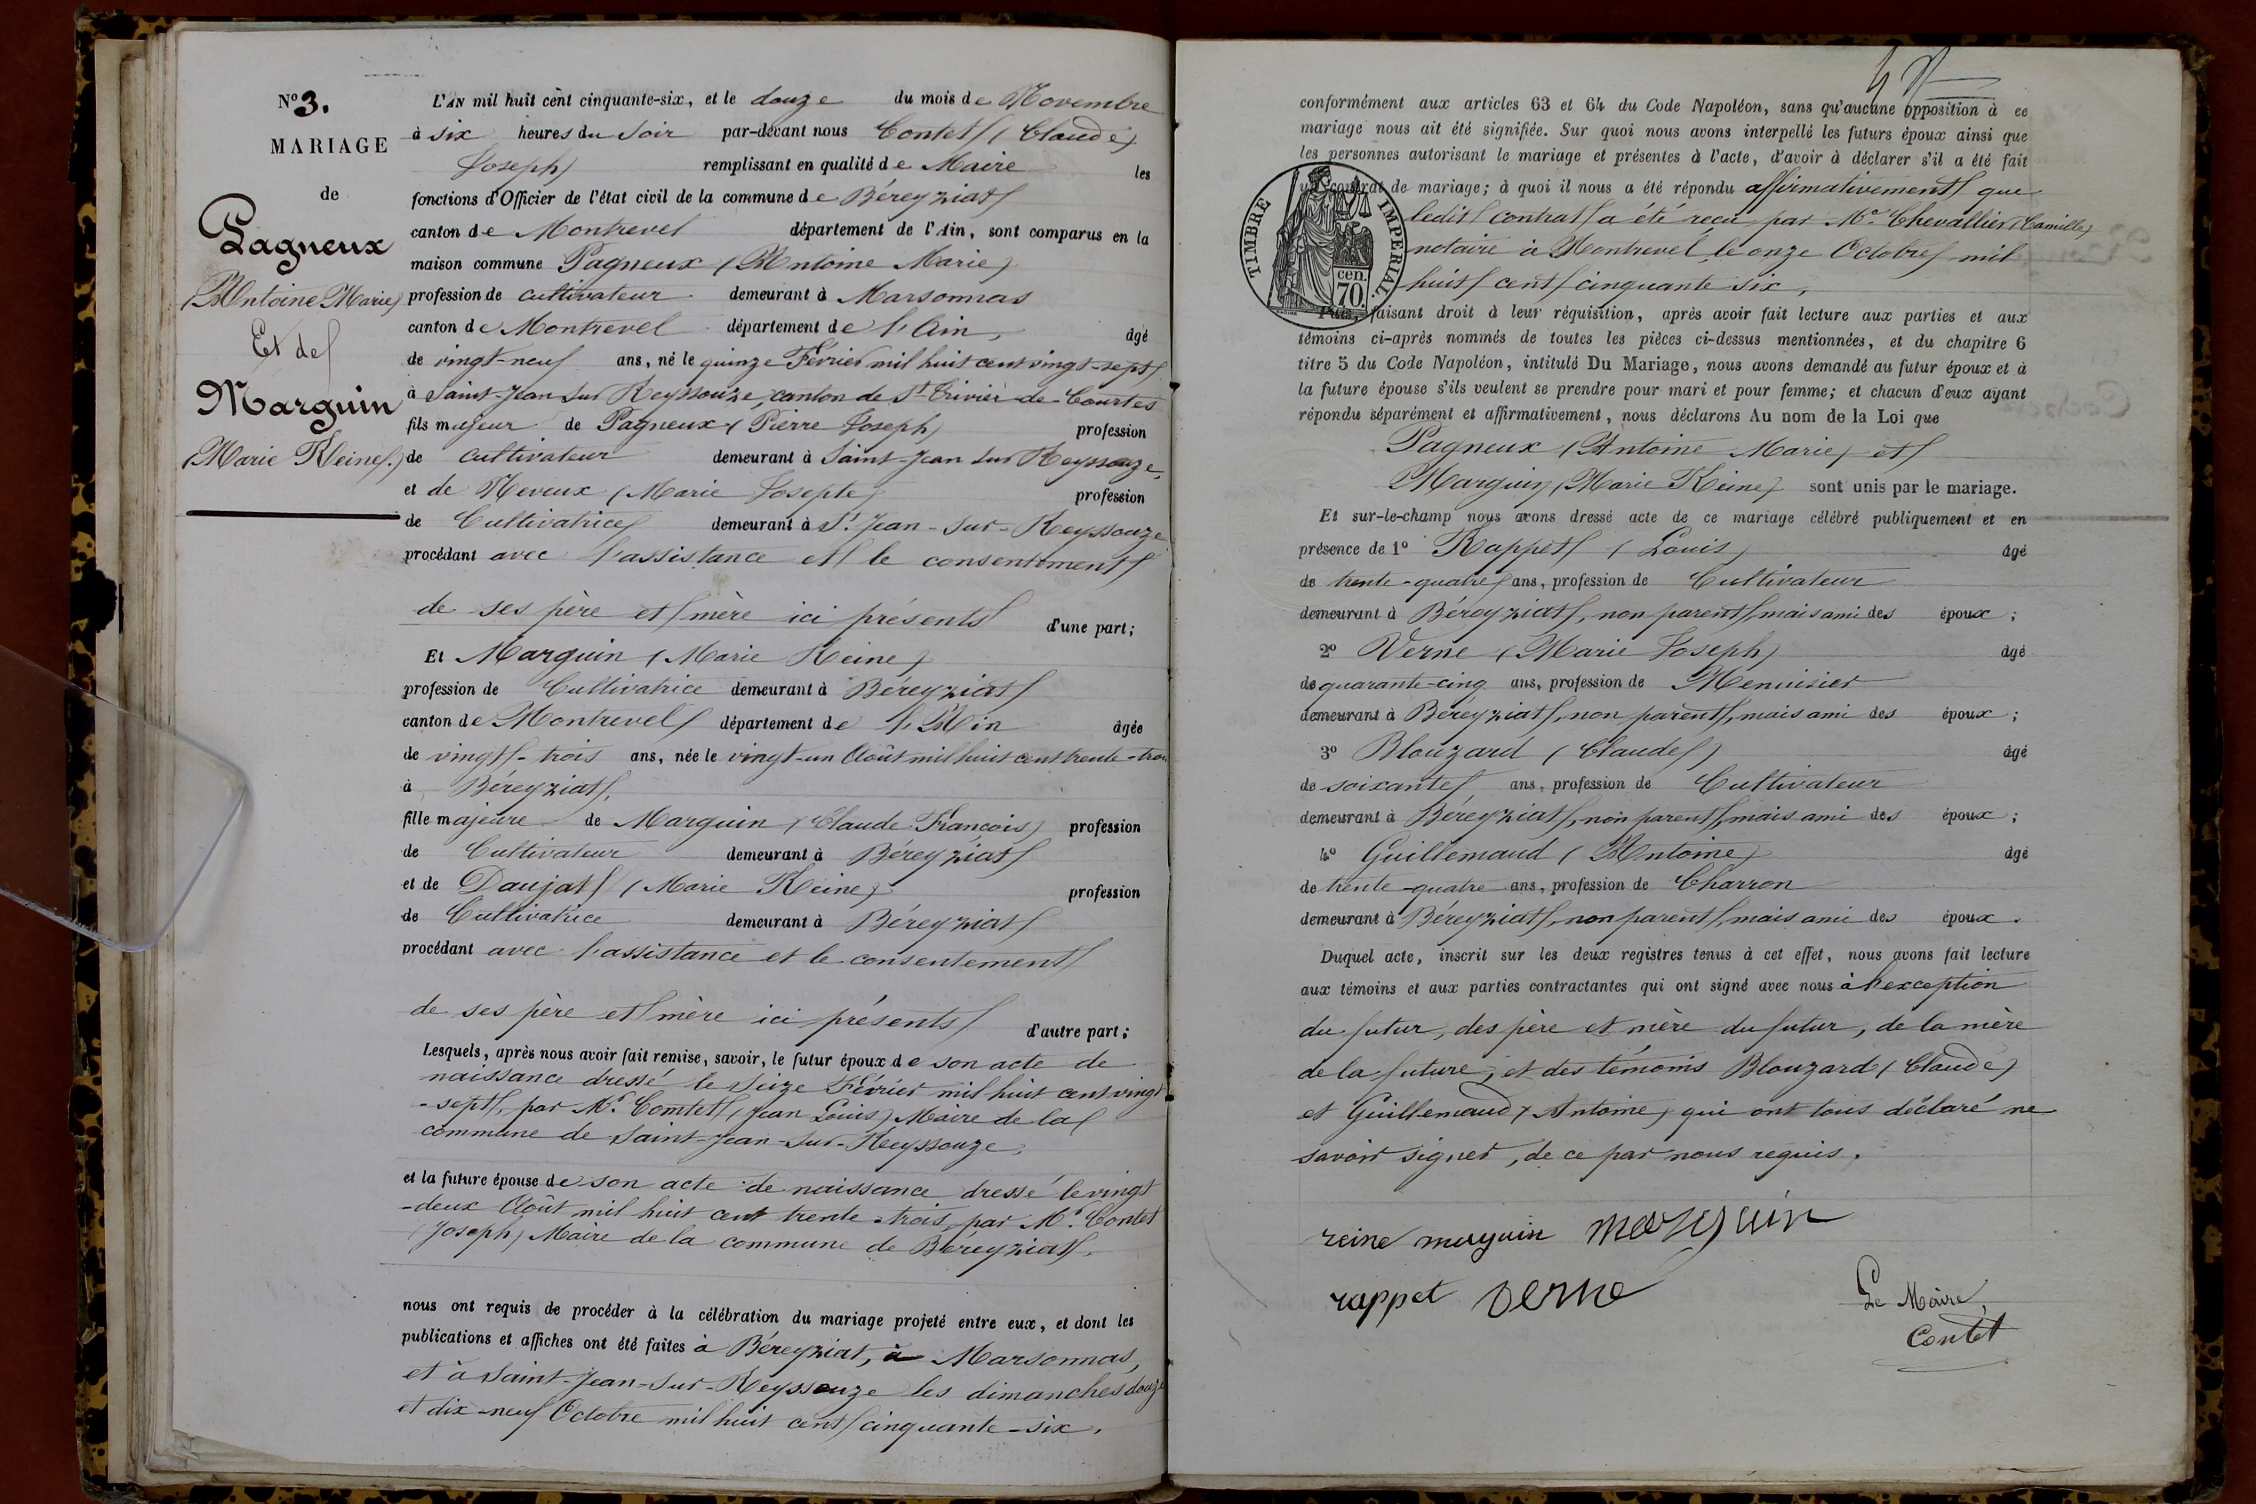 N° 3.
MARIAGE
de
Pagneux
(Antoine Marie)
Et de
Marguin
(Marie Reine.)
L'AN mil huit cent cinquante-six, et le douze du mois de Novembre
à six heures du soir par-devant nous Contet (Claude
Joseph) remplissant en qualité de Maire les
fonctions d'Officier de l'état civil de la commune de Béreyziat
canton de Montrevel département de l'Ain, sont comparus en la
maison commune Pagneux (Antoine Marie)
profession de cultivateur demeurant à Marsonnas
canton de Montrevel département de l'Ain, âgé
de vingt-neuf ans, né le quinze Février mil huit cent vingt-sept
à Saint-Jean sur Reyssouze, canton de St Trivier-de-Courtes
fils majeur de Pagneux (Pierre Joseph) profession
de cultivateur demeurant à Saint-Jean sur Reyssouze,
et de Neveux (Marie Josepte) profession
de Cultivatrice demeurant à St Jean-sur-Reyssouze
procédant avec l'assistance et le consentement
de ses père et mère ici présents d'une part;
Et Marguin (Marie Reine)
profession de Cultivatrice demeurant à Béreyziat
canton de Montrevel département de l'Ain âgée
de vingt-trois ans, née le vingt-un Août mil huit cent trente-trois
à Béreyziat,
fille majeure de Marguin (Claude François) profession
de Cultivateur demeurant à Béreyziat
et de Daujat (Marie Reine) profession
de Cultivatrice demeurant à Béreyziat
procédant avec l'assistance et le consentement
de ses père et mère ici présents d'autre part;
Lesquels, après nous avoir fait remise, savoir, le futur époux de son acte de
naissance dressé le seize Février mil huit cent vingt
-sept, par Mr. Comtet (Jean Louis) Maire de la
commune de Saint-Jean-sur-Reyssouze,
et la future épouse de son acte de naissance dressé le vingt
-deux Août mil huit cent trente-trois, par Mr. Contet
(Joseph) Maire de la commune de Béreyziat.
nous ont requis de procéder à la célébration du mariage projeté entre eux, et dont les
publications et affiches ont été faites à Béreyziat, à Marsonnas,
et à Saint-Jean-sur-Reyssouze les dimanches douze
et dix-neuf Octobre mil huit cent cinquante-six.
conformément aux articles 63 et 64 du Code Napoléon, sans qu'aucune opposition à ce
mariage nous ait été signifiée. Sur quoi nous avons interpellé les futurs époux ainsi que
les personnes autorisant le mariage et présentes à l'acte, d'avoir à déclarer s'il a été fait
un contrat de mariage; à quoi il nous a été répondu affirmativement que
ledit contrat a été reçu par Me. Chevallier (Camille)
notaire à Montrevel le onze Octobre mil
huit cent cinquante six,
TIMBRE IMPERIAL
cen.
70.
faisant droit à leur réquisition, après avoir fait lecture aux parties et aux
témoins ci-après nommés de toutes les pièces ci-dessus mentionnées, et du chapitre 6
titre 5 du Code Napoléon, intitulé Du Mariage, nous avons demandé au futur époux et à
la future épouse s'ils veulent se prendre pour mari et pour femme; et chacun d'eux ayant
répondu séparément et affirmativement, nous déclarons Au nom de la Loi que
Pagneux (Antoine Marie) et
Marguin (Marie Reine) sont unis par le mariage.
Et sur-le-champ nous avons dressé acte de ce mariage célébré publiquement et en
présence de 1° Rappet (Louis) âgé
de trente-quatre ans, profession de Cultivateur
demeurant à Béreyziat, non parent, mais ami des époux;
2° Verne (Marie Joseph) âgé
de quarante-cinq ans, profession de Menuisier
demeurant à Béreyziat, non parent, mais ami des époux;
3° Blouzard (Claude) âgé
de soixante ans, profession de Cultivateur
demeurant à Béreyziat, non parent, mais ami des époux;
4° Guillemaud (Antoine) âgé
de trente-quatre ans, profession de Charron
demeurant à Béreyziat, non parent, mais ami des époux.
Duquel acte, inscrit sur les deux registres tenus à cet effet, nous avons fait lecture
aux témoins et aux parties contractantes qui ont signé avec nous à l'exception
du futur, des père et mère du futur, de la mère
de la future, et des témoins Blouzard (Claude)
et Guillemaud (Antoine) qui ont tous déclaré ne
savoir signer, de ce par nous requis.
reine marguin marguin
rappet verne
Le Maire,
Contet